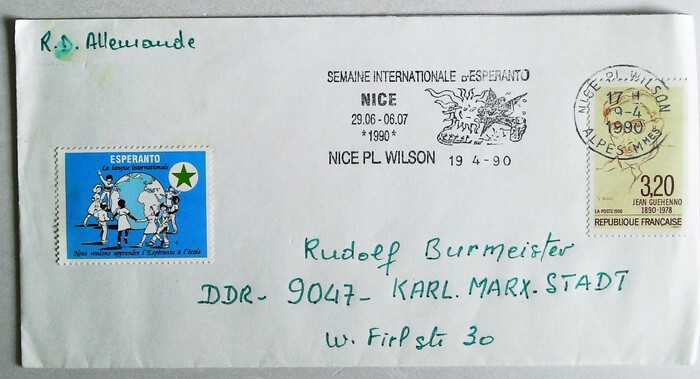 R.D. Allemande
SEMAINE INTERNATIONALE d'ESPERANTO
NICE
29.06 - 06.07
*1990*
NICE PL WILSON 19 4-90
NICE PL. WILSON
17 H
19-4
1990
ALPES MMES
3,20
JEAN GUEHENNO
1890-1978
LA POSTE 1990
REPUBLIQUE FRANCAISE
ESPERANTO
La langue internationale
Nous voulons apprendre l'Espéranto à l'école
Rudolf Burmeister
DDR- 9047- KARL. MARX-STADT
W. Firl str 30